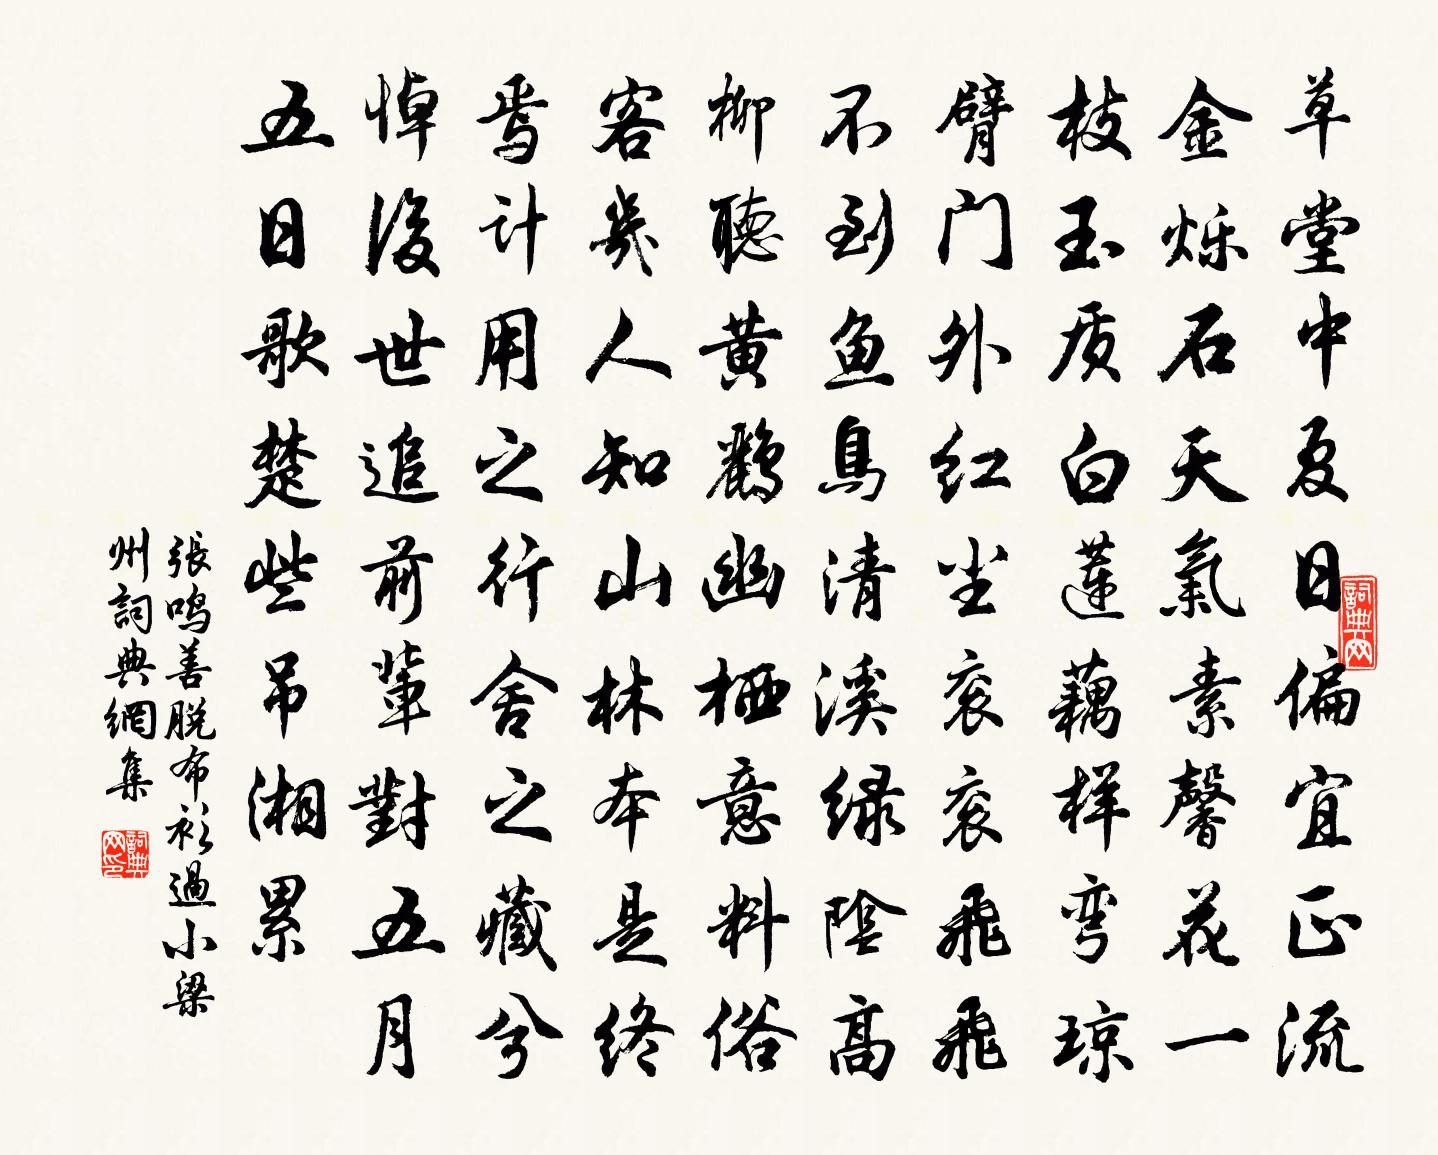 草堂中夏日偏宜正流
金烁石天氣素馨花一
枝玉质白莲藕样弯琼
臂门外红尘衮衮飛飛
不到鱼鳥清溪绿陰高
柳聽黄鸝幽栖意料俗
客幾人知山林本是终
焉计用之行舍之藏兮
悼後世追前輩對五月
五日歌楚些吊湘累
張鸣善脱布衫過小梁
州詞典網集
詞典网
詞典网印